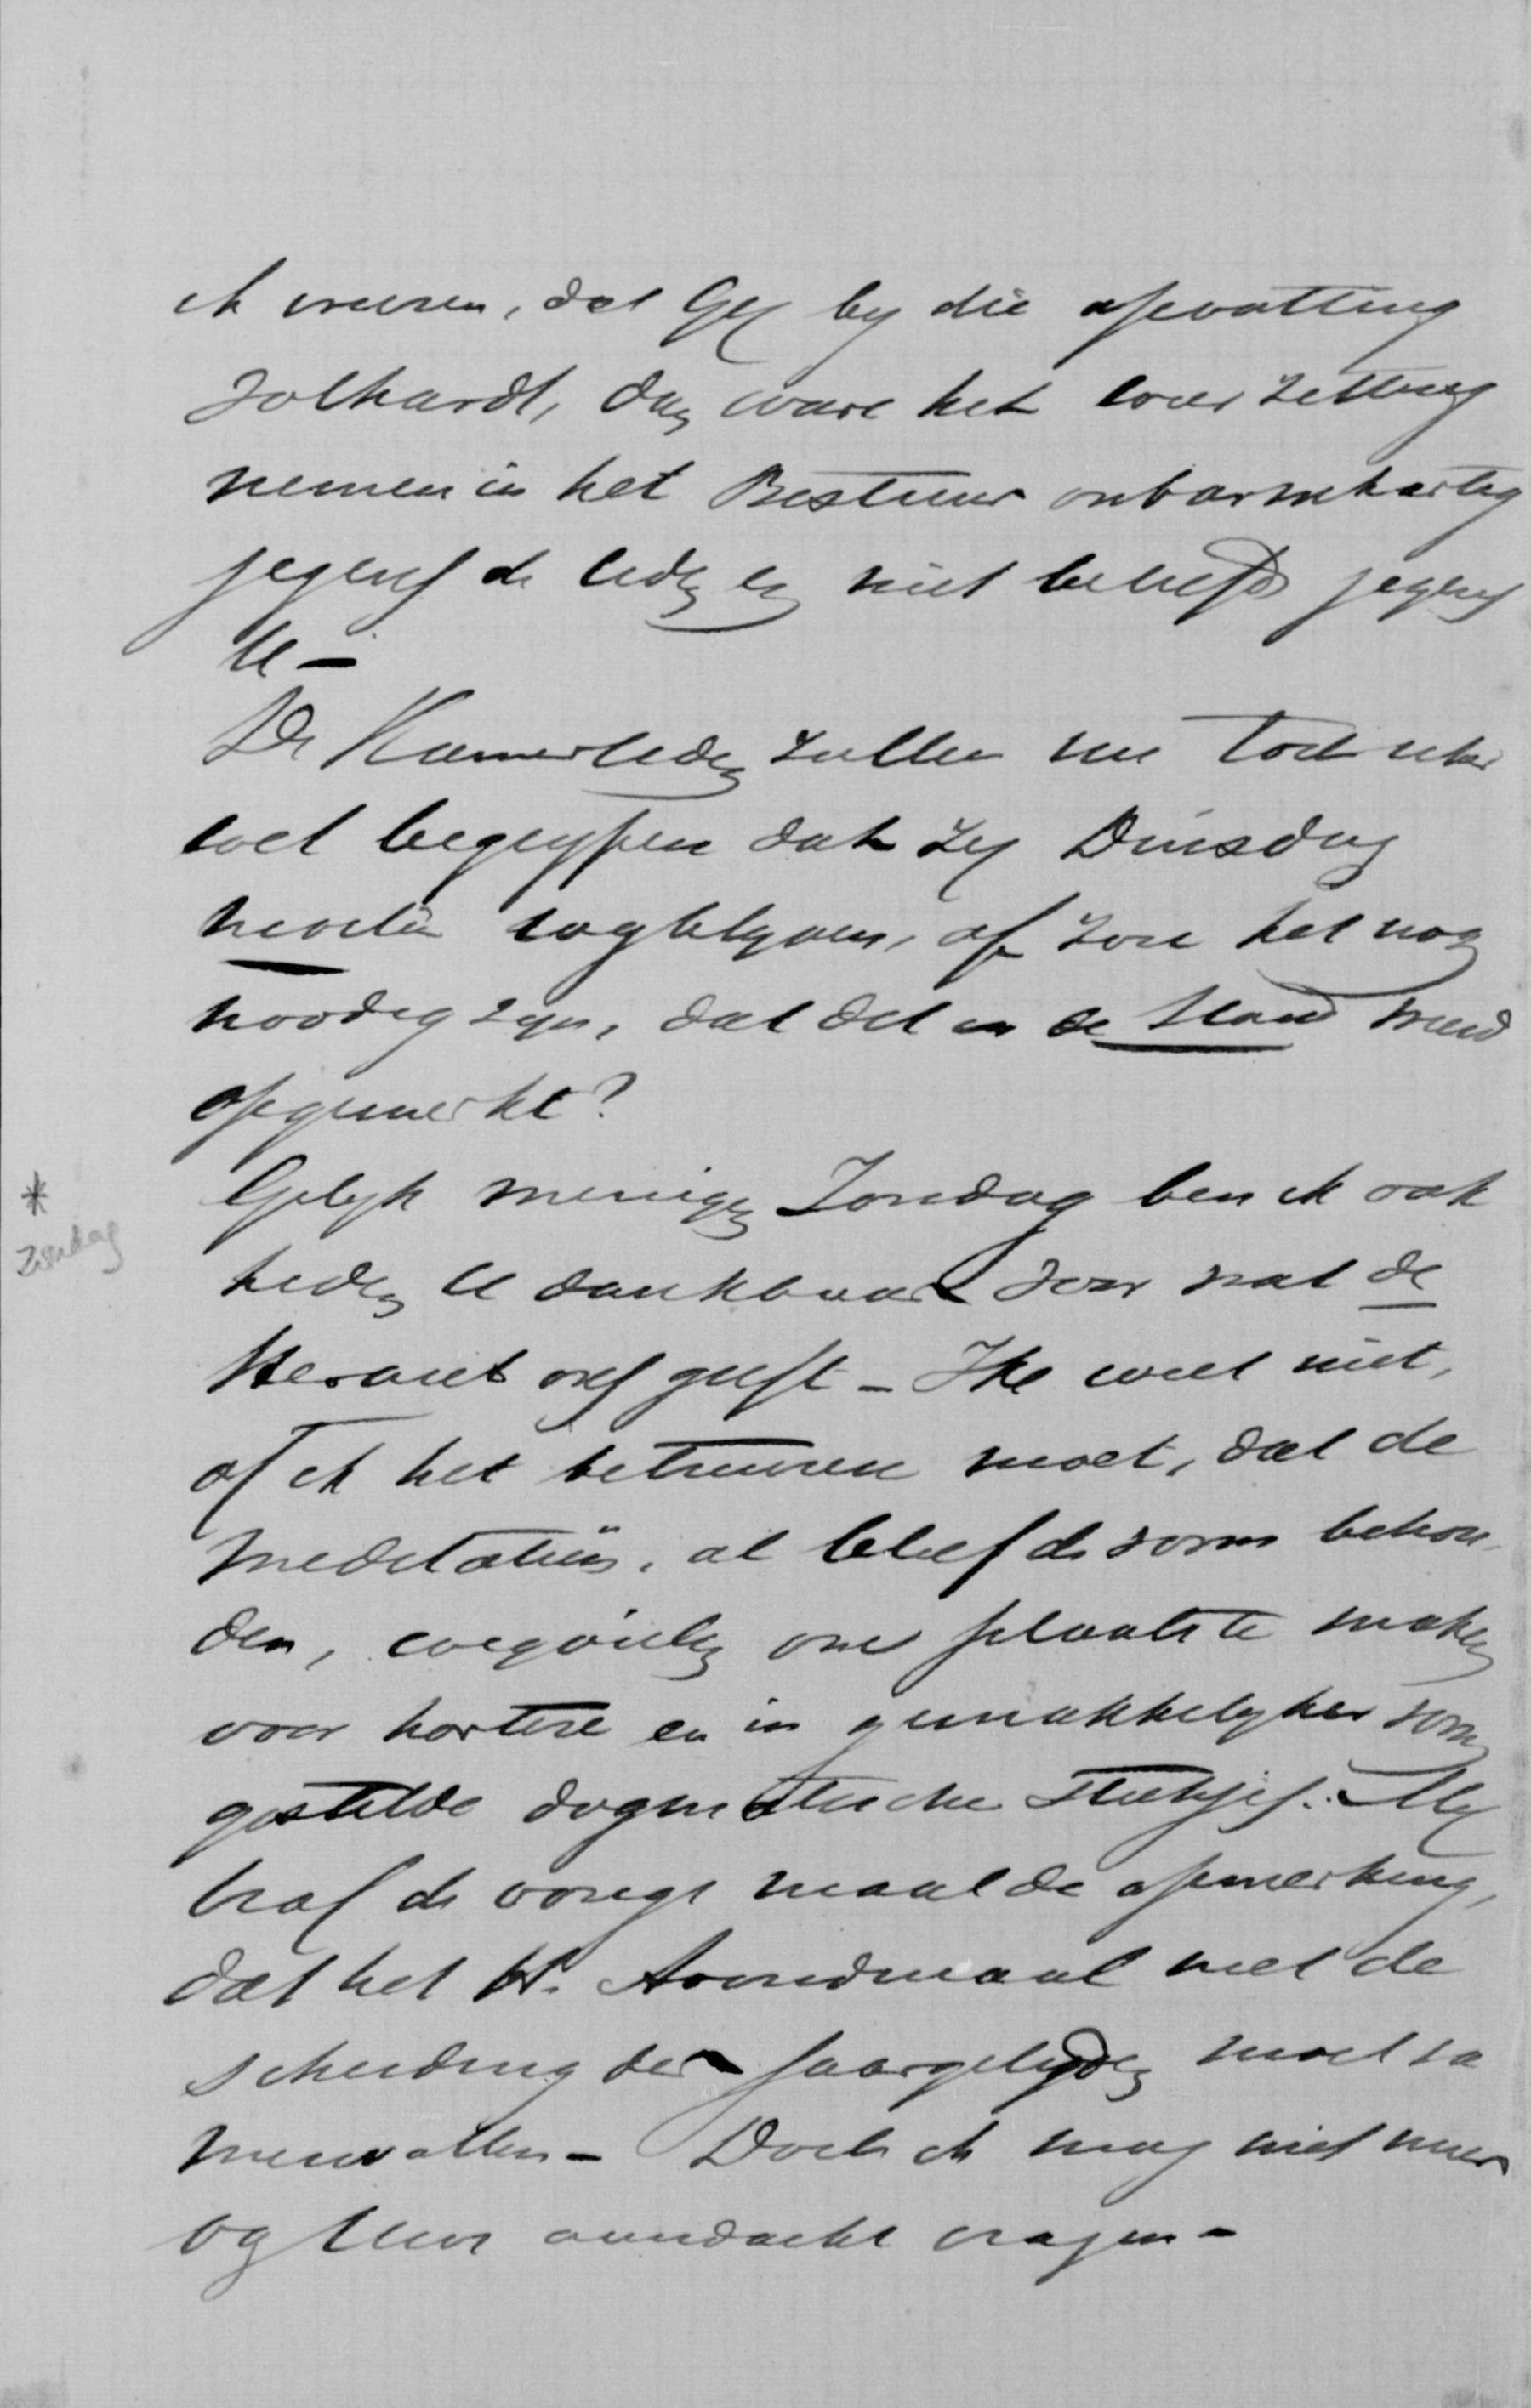 ik vreesen, dat Gij by die opvatting
volhardt, dan ware het weer zitting
nemen in het Bestuur onbarmhartig
jegens de leden en niet beleefd jegens
U –
De Kamerleden zullen nu toch zeker
wel begrypen dat zy Dinsdag
moeten wegblyven, of zou het nog
noodig zyn, dat dit in de Stand werd
opgemerkt?
Gelyk menigen Zondag ben ik ook
heden U dankbaar voor wat de
Heraut ons geeft – Ik weet niet,
of ik het betreuren moet, dat de
meditatiën, al bleef de vorm behou-
den, wegvielen om plaats te maken
voor kortere en in gemakkelyker vorm
gestelde dogmatische stukjes. My
trof de vorige maal de opmerking,
dat het H. Avondmaal met de
scheiding der jaargetyden moet sa
menvallen – Doch ik mag niet meer
van Uwe aandacht vragen –
*
Zondag